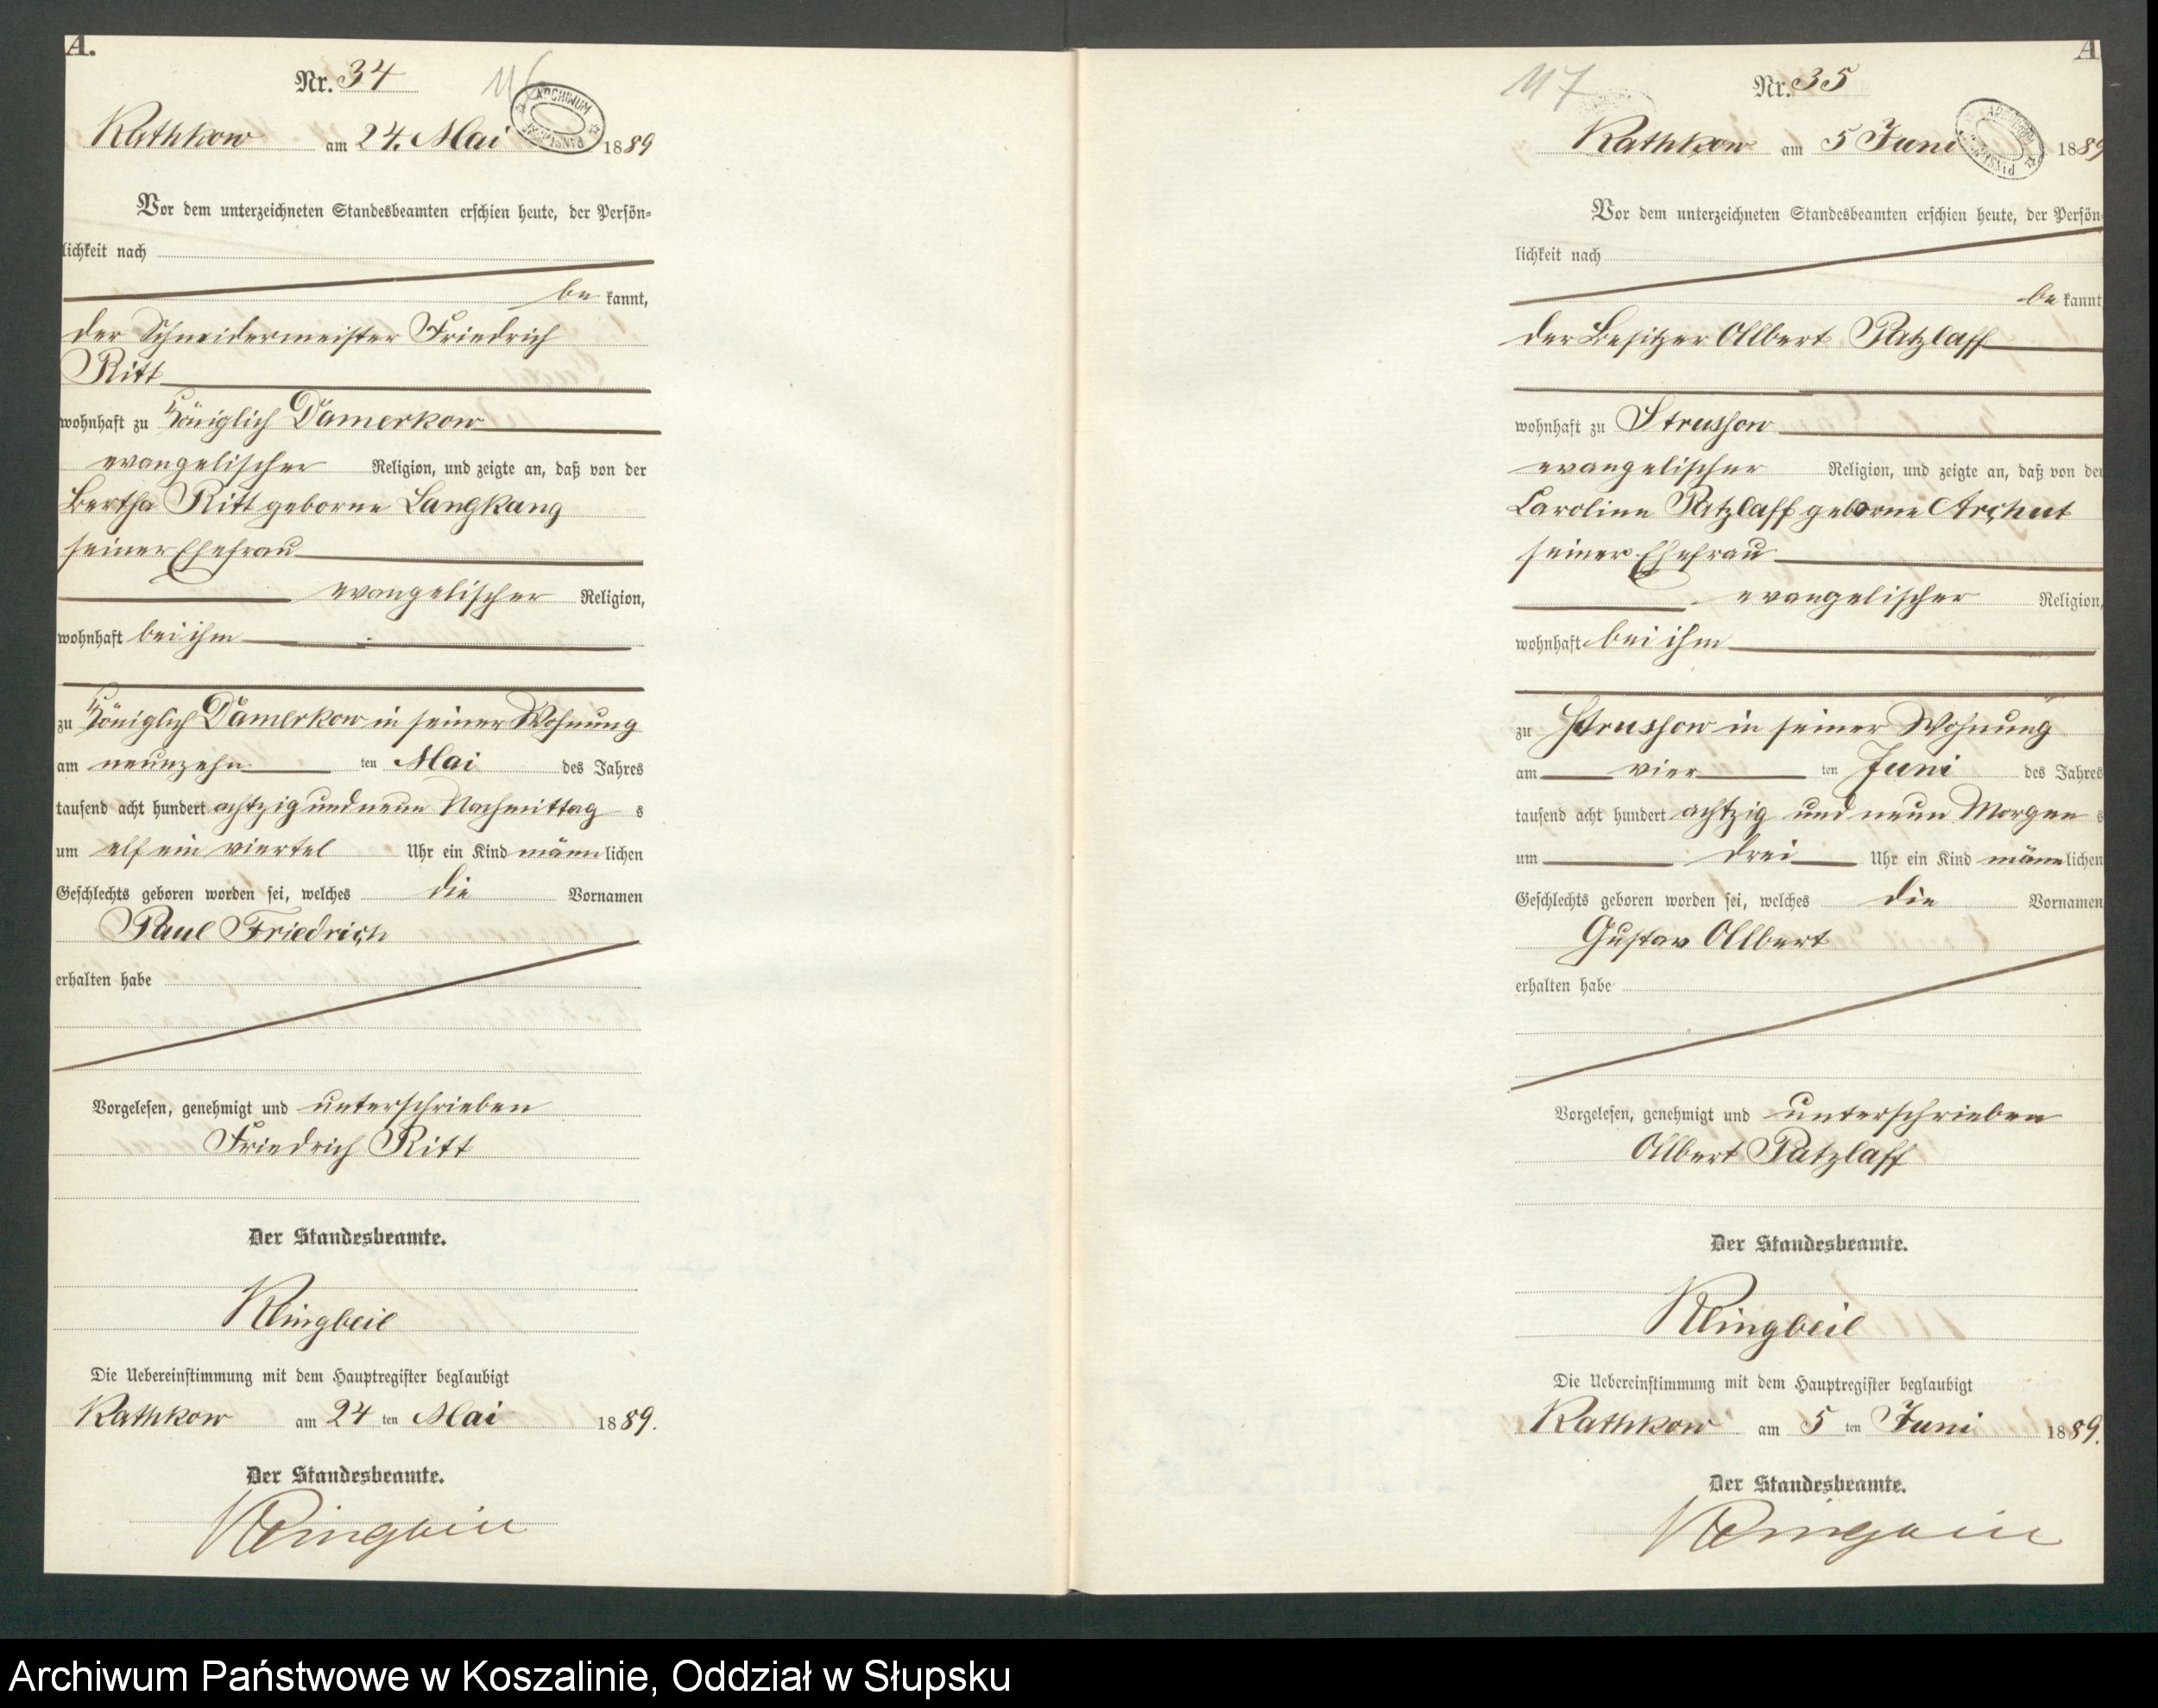 A.
Nr. 34
116
ARCHIWUM
Rathkow am 24. Mai 1889
Vor dem unterzeichneten Standesbeamten erschien heute, der Persön-
lichkeit nach
be kannt,
der Schneidermeister Friedrich
Ritt
wohnhaft zu Königlich Damerkow
evangelischer Religion, und zeigte an, daß von der
Bertha Ritt geborne Langkang
seiner Ehefrau
evangelischer Religion,
wohnhaft bei ihm
zu Königlich Damerkow in seiner Wohnung
am neunzehn ten Mai des Jahres
tausend acht hundert achtzig und neun Nachmittag s
um elf ein viertel Uhr ein Kind männlichen
Geschlechts geboren worden sei, welches die Vornamen
Paul Friedrich
erhalten habe
Vorgelesen, genehmigt und unterschrieben
Friedrich Ritt
Der Standesbeamte.
Klingbeil
Die Uebereinstimmung mit dem Hauptregister beglaubigt
Rathkow am 24 ten Mai 1889.
Der Standesbeamte.
Klingbeil
A
117
Nr. 35
Rathkow am 5 Juni 1889
Vor dem unterzeichneten Standesbeamten erschien heute, der Persön-
lichkeit nach
be kannt
der Besitzer Albert Patzlaff
wohnhaft zu Strussow
evangelischer Religion, und zeigte an, daß von der
Caroline Patzlaff geborne Archut
seiner Ehefrau
evangelischer Religion,
wohnhaft bei ihm
zu Strussow in seiner Wohnung
am vier ten Juni des Jahres
tausend acht hundert achtzig und neun Morgen s
um drei Uhr ein Kind männlichen
Geschlechts geboren worden sei, welches die Vornamen
Gustav Albert
erhalten habe
Vorgelesen, genehmigt und unterschrieben
Albert Patzlaff
Der Standesbeamte.
Klingbeil
Die Uebereinstimmung mit dem Hauptregister beglaubigt
Rathkow am 5 ten Juni 1889.
Der Standesbeamte.
Klingbeil
Archiwum Państwowe w Koszalinie, Oddział w Słupsku